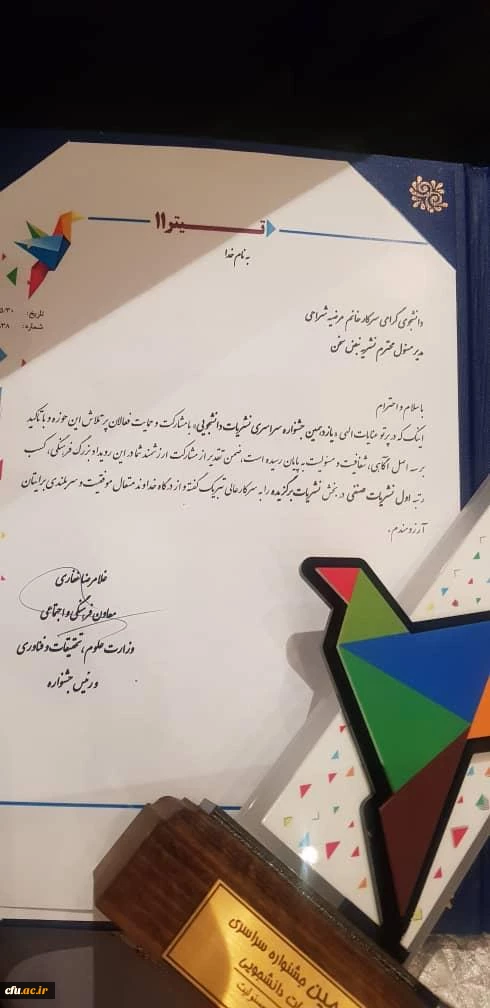 تیتر ۱۱
به نام خدا
تاریخ:
شماره:
دانشجوی گرامی سرکار خانم مرضیه شراهی
مدیر مسئول محترم نشریه نبض سخن
با سلام و احترام
اینک که در پرتو عنایات الهی «یازدهمین جشنواره سراسری نشریات دانشجویی» با مشارکت و حمایت فعالان پرتلاش این حوزه و با تاکید
بر سه اصل آگاهی، شفافیت و مسئولیت به پایان رسیده است، ضمن تقدیر از مشارکت ارزشمند شما در این رویداد بزرگ فرهنگی، کسب
رتبه اول نشریات صنفی در بخش نشریات برگزیده را به سرکارعالی تبریک گفته و از درگاه خداوند متعال موفقیت و سربلندی برایتان
آرزومندم.
غلامرضا غفاری
معاون فرهنگی و اجتماعی
وزارت علوم، تحقیقات و فناوری
و رئیس جشنواره
جشنواره سراسری
دانشجویی
cfu.ac.ir